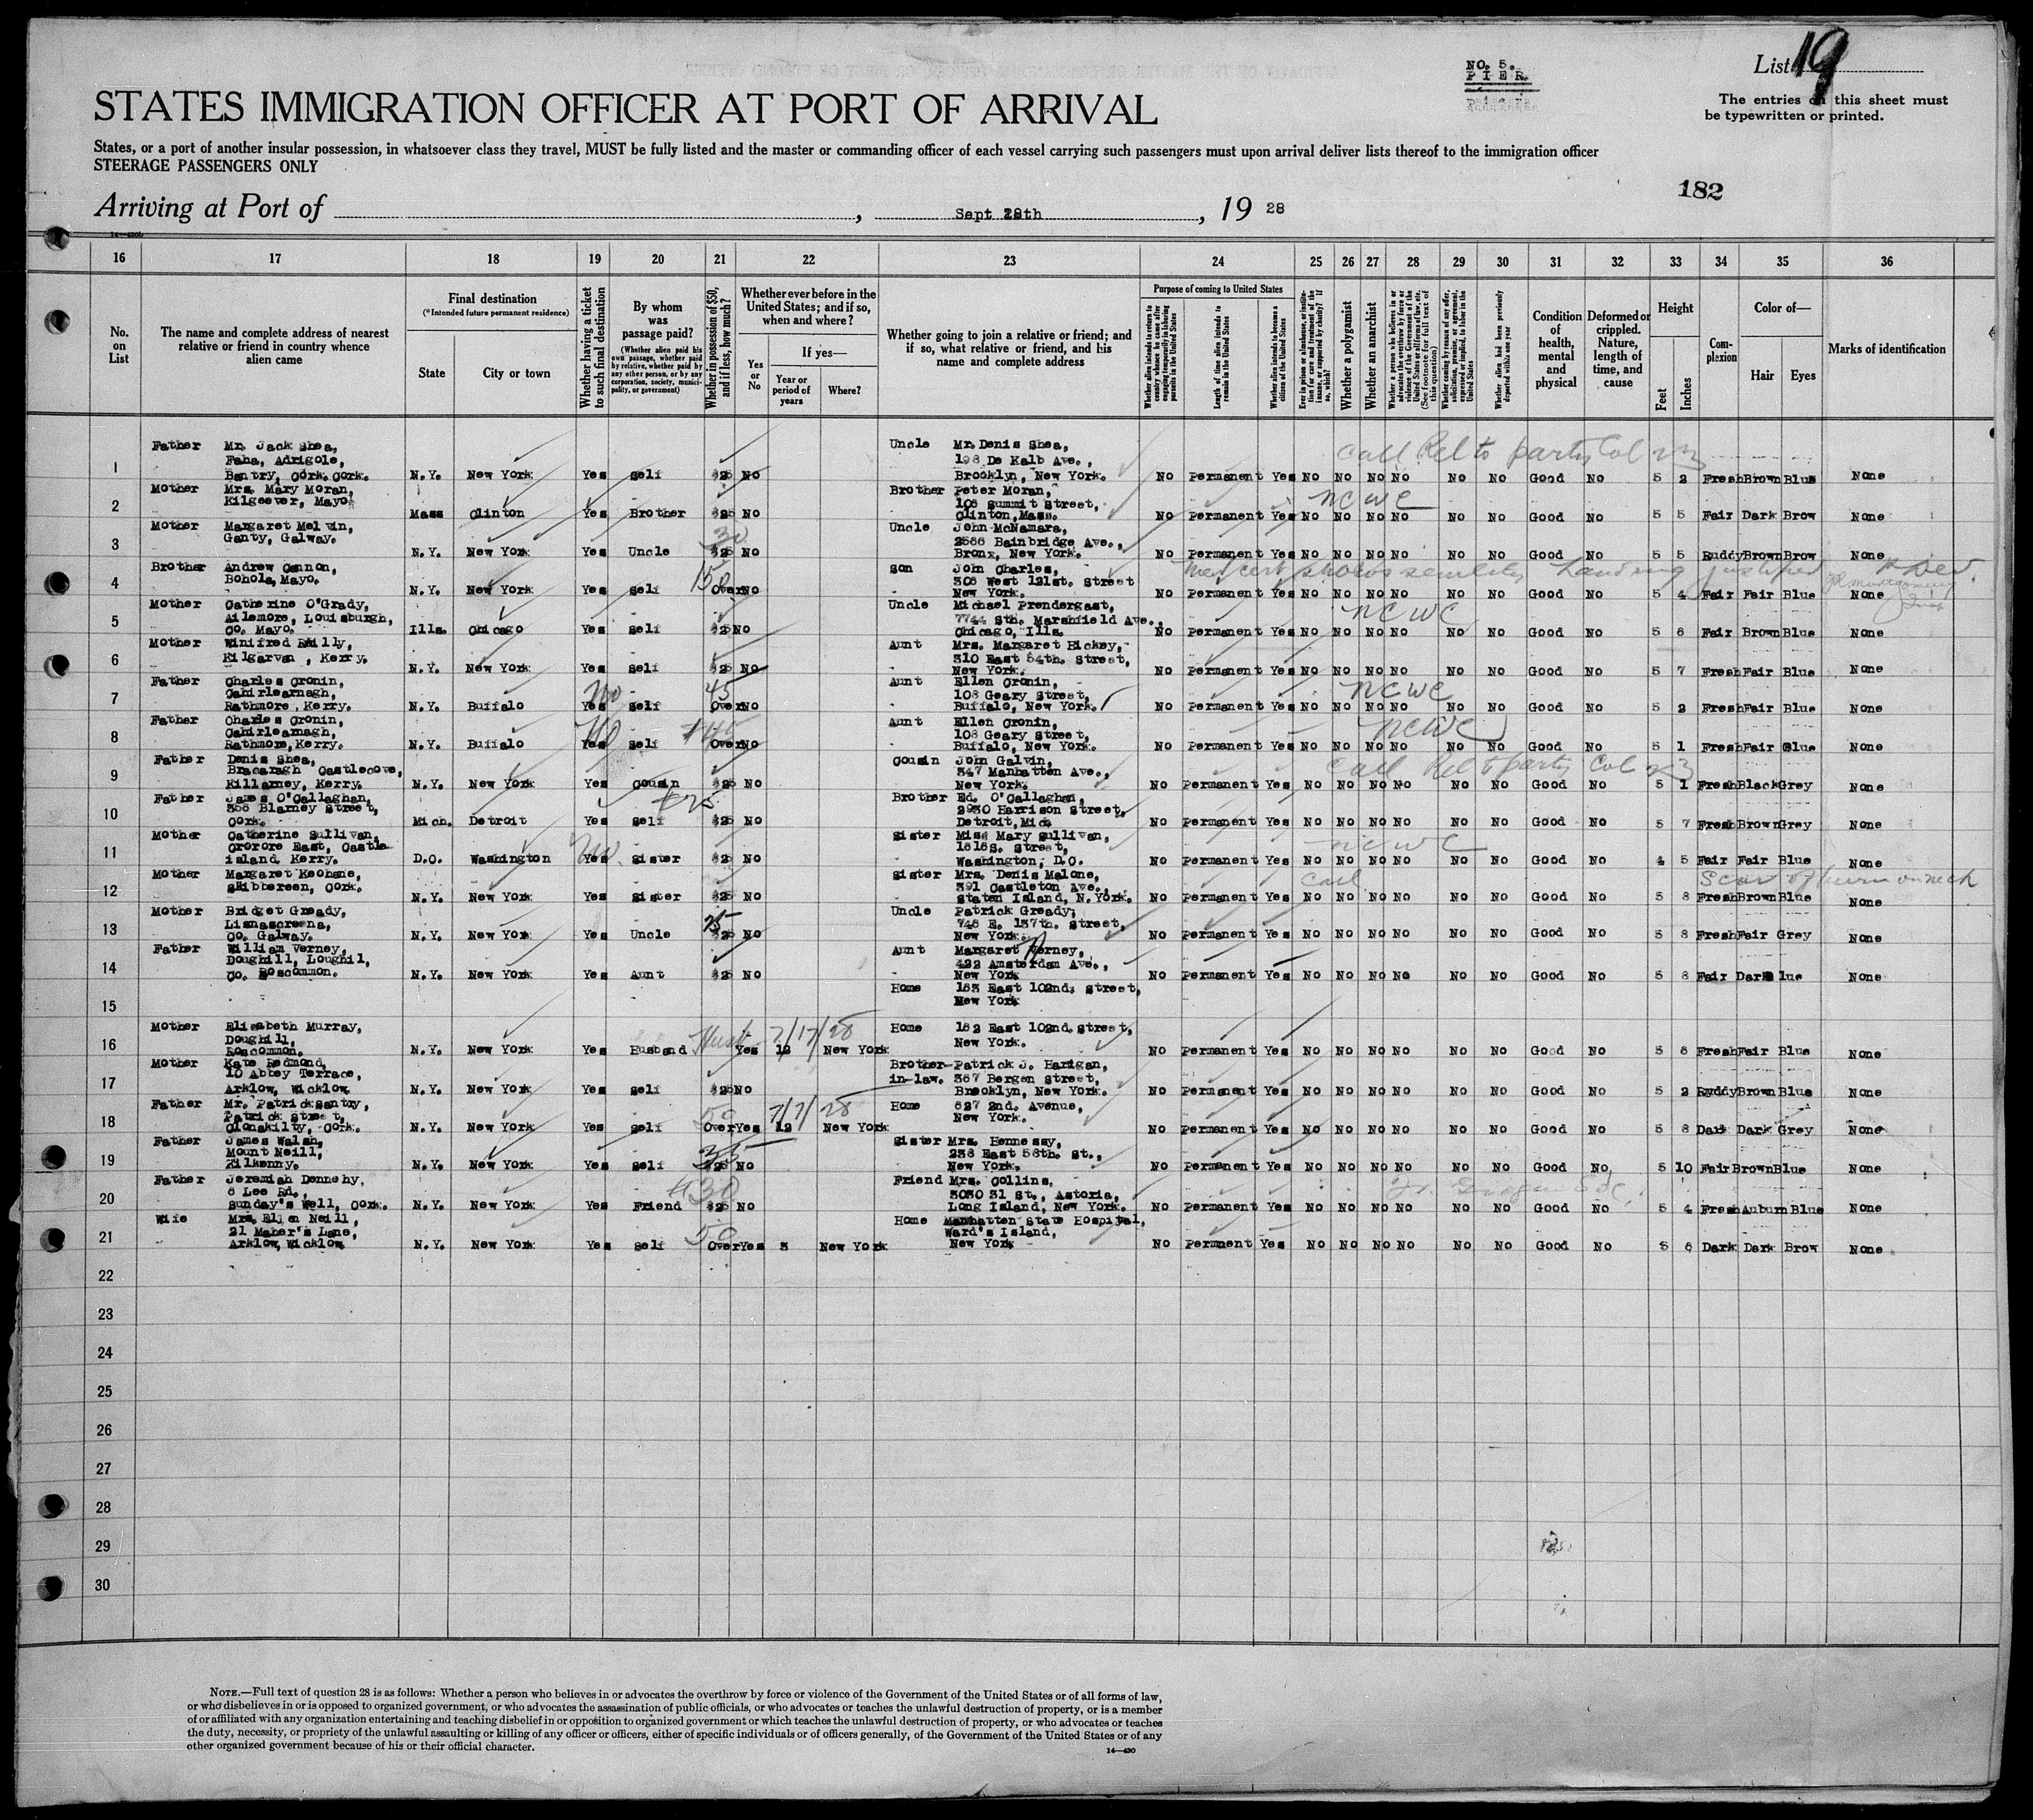 NO. 5.
PIER.
List 19
The entries on this sheet must
be typewritten or printed.
STATES IMMIGRATION OFFICER AT PORT OF ARRIVAL
States, or a port of another insular possession, in whatsoever class they travel, MUST be fully listed and the master or commanding officer of each vessel carrying such passengers must upon arrival deliver lists thereof to the immigration officer
STEERAGE PASSENGERS ONLY
182
Arriving at Port of , Sept 28th , 19 28
16 17 18 19 20 21 22 23 24 25 26 27 28 29 30 31 32 33 34 35 36
No. on List
The name and complete address of nearest relative or friend in country whence alien came
Final destination
(*Intended future permanent residence)
State
City or town
Whether having a ticket to such final destination
By whom was passage paid?
(Whether alien paid his own passage, whether paid by relative, whether paid by any other person, or by any corporation, society, municipality, or government)
Whether in possession of $50, and if less, how much?
Whether ever before in the United States; and if so, when and where?
Yes or No
If yes—
Year or period of years
Where?
Whether going to join a relative or friend; and if so, what relative or friend, and his name and complete address
Purpose of coming to United States
Whether alien intends to return to country whence he came after engaging temporarily in laboring pursuits in the United States
Length of time the alien intends to remain in the United States
Whether alien intends to become a citizen of the United States
Ever in prison or almshouse, or institution for care and treatment of the insane, or supported by charity? If so, which?
Whether a polygamist
Whether an anarchist
Whether a person who believes in or advocates the overthrow by force or violence of the Government of the United States or all forms of law, etc. (See footnote for full text of this question)
Whether coming by reason of any offer, solicitation, promise, or agreement, expressed or implied, to labor in the United States
Whether alien had been previously deported within one year
Condition of health, mental and physical
Deformed or crippled. Nature, length of time, and cause
Height
Feet
Inches
Complexion
Color of—
Hair
Eyes
Marks of identification
call Rel to party Col 23
1 Father Mr. Jack Shea, Faha, Adrigole, Bantry, Cork. Cork. N.Y. New York Yes Self $25 No Uncle Mr. Denis Shea, 198 De Kalb Ave., Brooklyn, New York. No Permanent Yes No No No No No No Good No 5 2 Fresh Brown Blue None
NCWC
2 Mother Mrs. Mary Moran, Kilgeever, Mayo. Mass Clinton Yes Brother $25 No Brother Peter Moran, 106 Summit Street, Clinton, Mass. No Permanent Yes No No No No No No Good No 5 5 Fair Dark Brow None
30
3 Mother Margaret Melvin, Ganty, Galway. N.Y. New York Yes Uncle $25 No Uncle John McNamara, 2566 Bainbridge Ave., Bronx, New York. No Permanent Yes No No No No No No Good No 5 5 Ruddy Brown Brow None
Med cert shows senility Landing justified
150
4 Brother Andrew Cannon, Bohola, Mayo. N.Y. New York Yes Self Over No Son John Charles, 306 West 121st. Street New York. No Permanent Yes No No No No No No Good No 5 4 Fair Fair Blue None
NCWC
5 Mother Catherine O'Grady, Ailemore, Louisburgh, Co. Mayo. Ills. Chicago Yes Self $25 No Uncle Michael Prendergast, 7744 Sth. Marshfield Ave., Chicago, Ills. No Permanent Yes No No No No No No Good No 5 6 Fair Brown Blue None
6 Mother Winifred Reilly, Kilgarvan, Kerry. N.Y. New York Yes Self $25 No Aunt Mrs. Margaret Hickey, 310 East 54th. Street, New York. No Permanent Yes No No No No No No Good No 5 7 Fresh Fair Blue None
No 45 NCWC
7 Father Charles Cronin, Cahirlearnagh, Rathmore, Kerry. N.Y. Buffalo Yes Self Over No Aunt Ellen Cronin, 108 Geary Street, Buffalo, New York. No Permanent Yes No No No No No No Good No 5 2 Fresh Fair Blue None
No $45 NCWC
8 Father Charles Cronin, Cahirlearnagh, Rathmore, Kerry. N.Y. Buffalo Yes Self Over No Aunt Ellen Cronin, 108 Geary Street, Buffalo, New York. No Permanent Yes No No No No No No Good No 5 1 Fresh Fair Blue None
call Rel to party Col 23
9 Father Denis Shea, Bracaragh Castlecove, Killarney, Kerry. N.Y. New York Yes Cousin $25 No Cousin John Galvin, 347 Manhatten Ave., New York. No Permanent Yes No No No No No No Good No 5 1 Fresh Black Grey None
$75
10 Father James O'Callaghan, 366 Blarney Street, Cork. Mich. Detroit Yes Self $25 No Brother Ed. O'Callaghan, 2930 Harrison Street, Detroit, Mich. No Permanent Yes No No No No No No Good No 5 7 Fresh Brown Grey None
No NCWC
11 Mother Catherine Sullivan, Crorore East, Castle island, Kerry. D.C. Washington Yes Sister $25 No Sister Miss Mary Sullivan, 1816 S. Street, Washington, D.C. No Permanent Yes No No No No No No Good No 4 5 Fair Fair Blue None
call Scar of burn on neck
12 Mother Margaret Keohane, Skibbereen, Cork. N.Y. New York Yes Sister $25 No Sister Mrs. Denis Malone, 391 Castleton Ave., Staten Island, N. York. No Permanent Yes No No No No No No Good No 5 8 Fresh Brown Blue None
75
13 Mother Bridget Gready, Lisnascreena, Co. Galway. N.Y. New York Yes Uncle $25 No Uncle Patrick Gready, 746 E. 137th. Street, New York. No Permanent Yes No No No No No No Good No 5 8 Fresh Fair Grey None
14 Father William Verney, Doughill, Loughil, Co. Roscommon. N.Y. New York Yes Aunt $25 No Aunt Margaret Verney, 422 Amsterdam Ave., New York No Permanent Yes No No No No No No Good No 5 8 Fair Dark Blue None
15 Home 163 East 102nd. Street, New York
Husb. 7/17/28
16 Mother Elisabeth Murray, Doughill, Roscommon. N.Y. New York Yes Husband Yes 12 New York Home 162 East 102nd. Street, New York. No Permanent Yes No No No No No No Good No 5 6 Fresh Fair Blue None
17 Mother Kate Redmond, 10 Abbey Terrace, Arklow, Wicklow N.Y. New York Yes Self $25 No Brother-in-law. Patrick J. Harigan, 367 Bergen Street, Brooklyn, New York. No Permanent Yes No No No No No No Good No 5 2 Ruddy Brown Blue None
50 7/7/28
18 Father Mr. Patrick Santry, Patrick Street, Clonakilty, Cork. N.Y. New York Yes Self Over Yes 12 New York Home 627 2nd. Avenue, New York. No Permanent Yes No No No No No No Good No 5 8 Dark Dark Grey None
35
19 Father James Walsh, Mount Neill, Kilkenny. N.Y. New York Yes Self $25 No Sister Mrs. Hennessy, 238 East 58th. St., New York. No Permanent Yes No No No No No No Good No 5 10 Fair Brown Blue None
$30
20 Father Jeremiah Dennehy, 6 Lee Rd., Sunday's Well, Cork. N.Y. New York Yes Friend $25 No Friend Mrs. Collins, 3030 31 St., Astoria, Long Island, New York. No Permanent Yes No No No No No No Good No 5 4 Fresh Auburn Blue None
50
21 Wife Mrs. Ellen Neill, 21 Maher's Lane, Arklow, Wicklow N.Y. New York Yes Self Over Yes 3 New York Home Manhatten State Hospital, Ward's Island, New York No Permanent Yes No No No No No No Good No 5 6 Dark Dark Brow None
22
23
24
25
26
27
28
29
30
NOTE.—Full text of question 28 is as follows: Whether a person who believes in or advocates the overthrow by force or violence of the Government of the United States or of all forms of law,
or who disbelieves in or is opposed to organized government, or who advocates the assassination of public officials, or who advocates or teaches the unlawful destruction of property, or is a member
of or affiliated with any organization entertaining and teaching disbelief in or opposition to organized government or which teaches the unlawful destruction of property, or who advocates or teaches
the duty, necessity, or propriety of the unlawful assaulting or killing of any officer or officers, either of specific individuals or of officers generally, of the Government of the United States or of any
other organized government because of his or their official character.
14—430